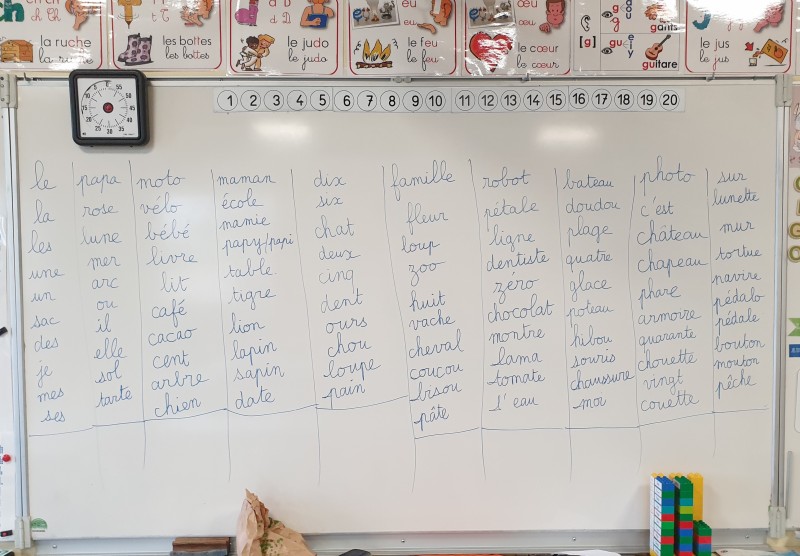 la ruche
la ruche
les bottes
les bottes
d D
le judo
le judo
eu
le feu
le feu
œu
œu
le cœur
le cœur
[g]
gants
guitare
le jus
le jus
1 2 3 4 5 6 7 8 9 10 11 12 13 14 15 16 17 18 19 20
le
la
les
une
un
sac
des
je
mes
ses
papa
rose
lune
mer
arc
ou
il
elle
sol
tarte
moto
vélo
bébé
livre
lit
café
cacao
cent
arbre
chien
maman
école
mamie
papy/papi
table
tigre
lion
lapin
sapin
date
dix
six
chat
deux
cinq
dent
ours
chou
loupe
pain
famille
fleur
loup
zoo
huit
vache
cheval
coucou
bisou
pâte
robot
pétale
ligne
dentiste
zéro
chocolat
montre
lama
tomate
l'eau
bateau
doudou
plage
quatre
glace
poteau
hibou
souris
chaussure
moi
photo
c'est
château
chapeau
phare
armoire
quarante
chouette
vingt
couette
sur
lunette
mur
tortue
navire
pédalo
pédale
bouton
mouton
pêche